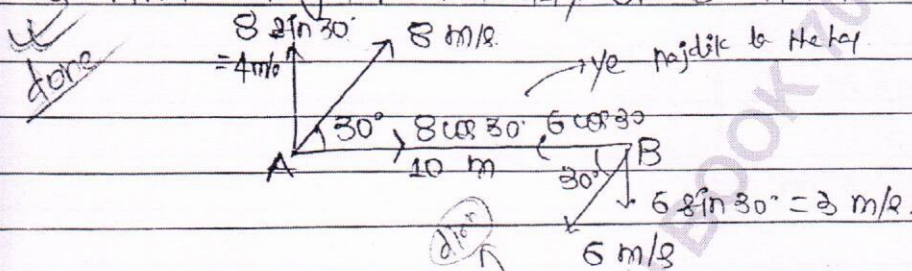 done
8 sin 30°
= 4 m/s
8 m/s
→ ye najdik la
30° 8 cos 30° 6 cos 30
A 10 m B
30°
6 sin 30° = 3 m/s.
6 m/s
BOOK 70